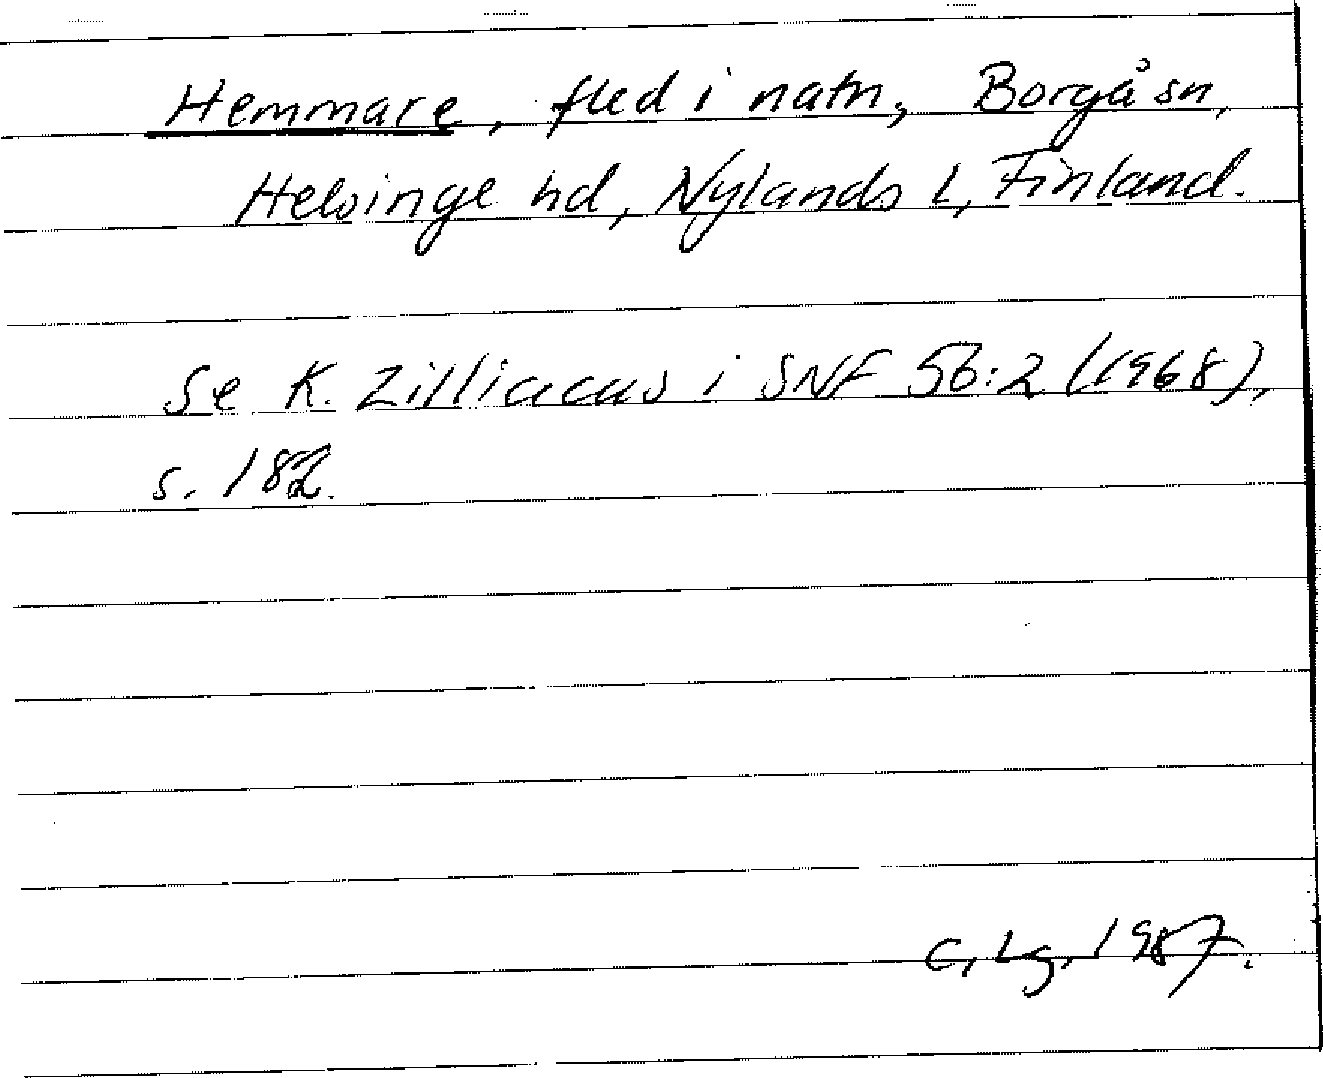 Hemmare, fled i natn, Borgå sn,
Helsinge hd, Nylands l, Finland.
Se K. Zilliacus i SNF 56:2 (1968),
s. 182.
C, Lg, 1987.